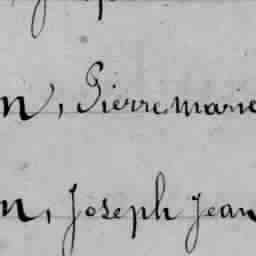 n, Pierre marie
n, Joseph Jean